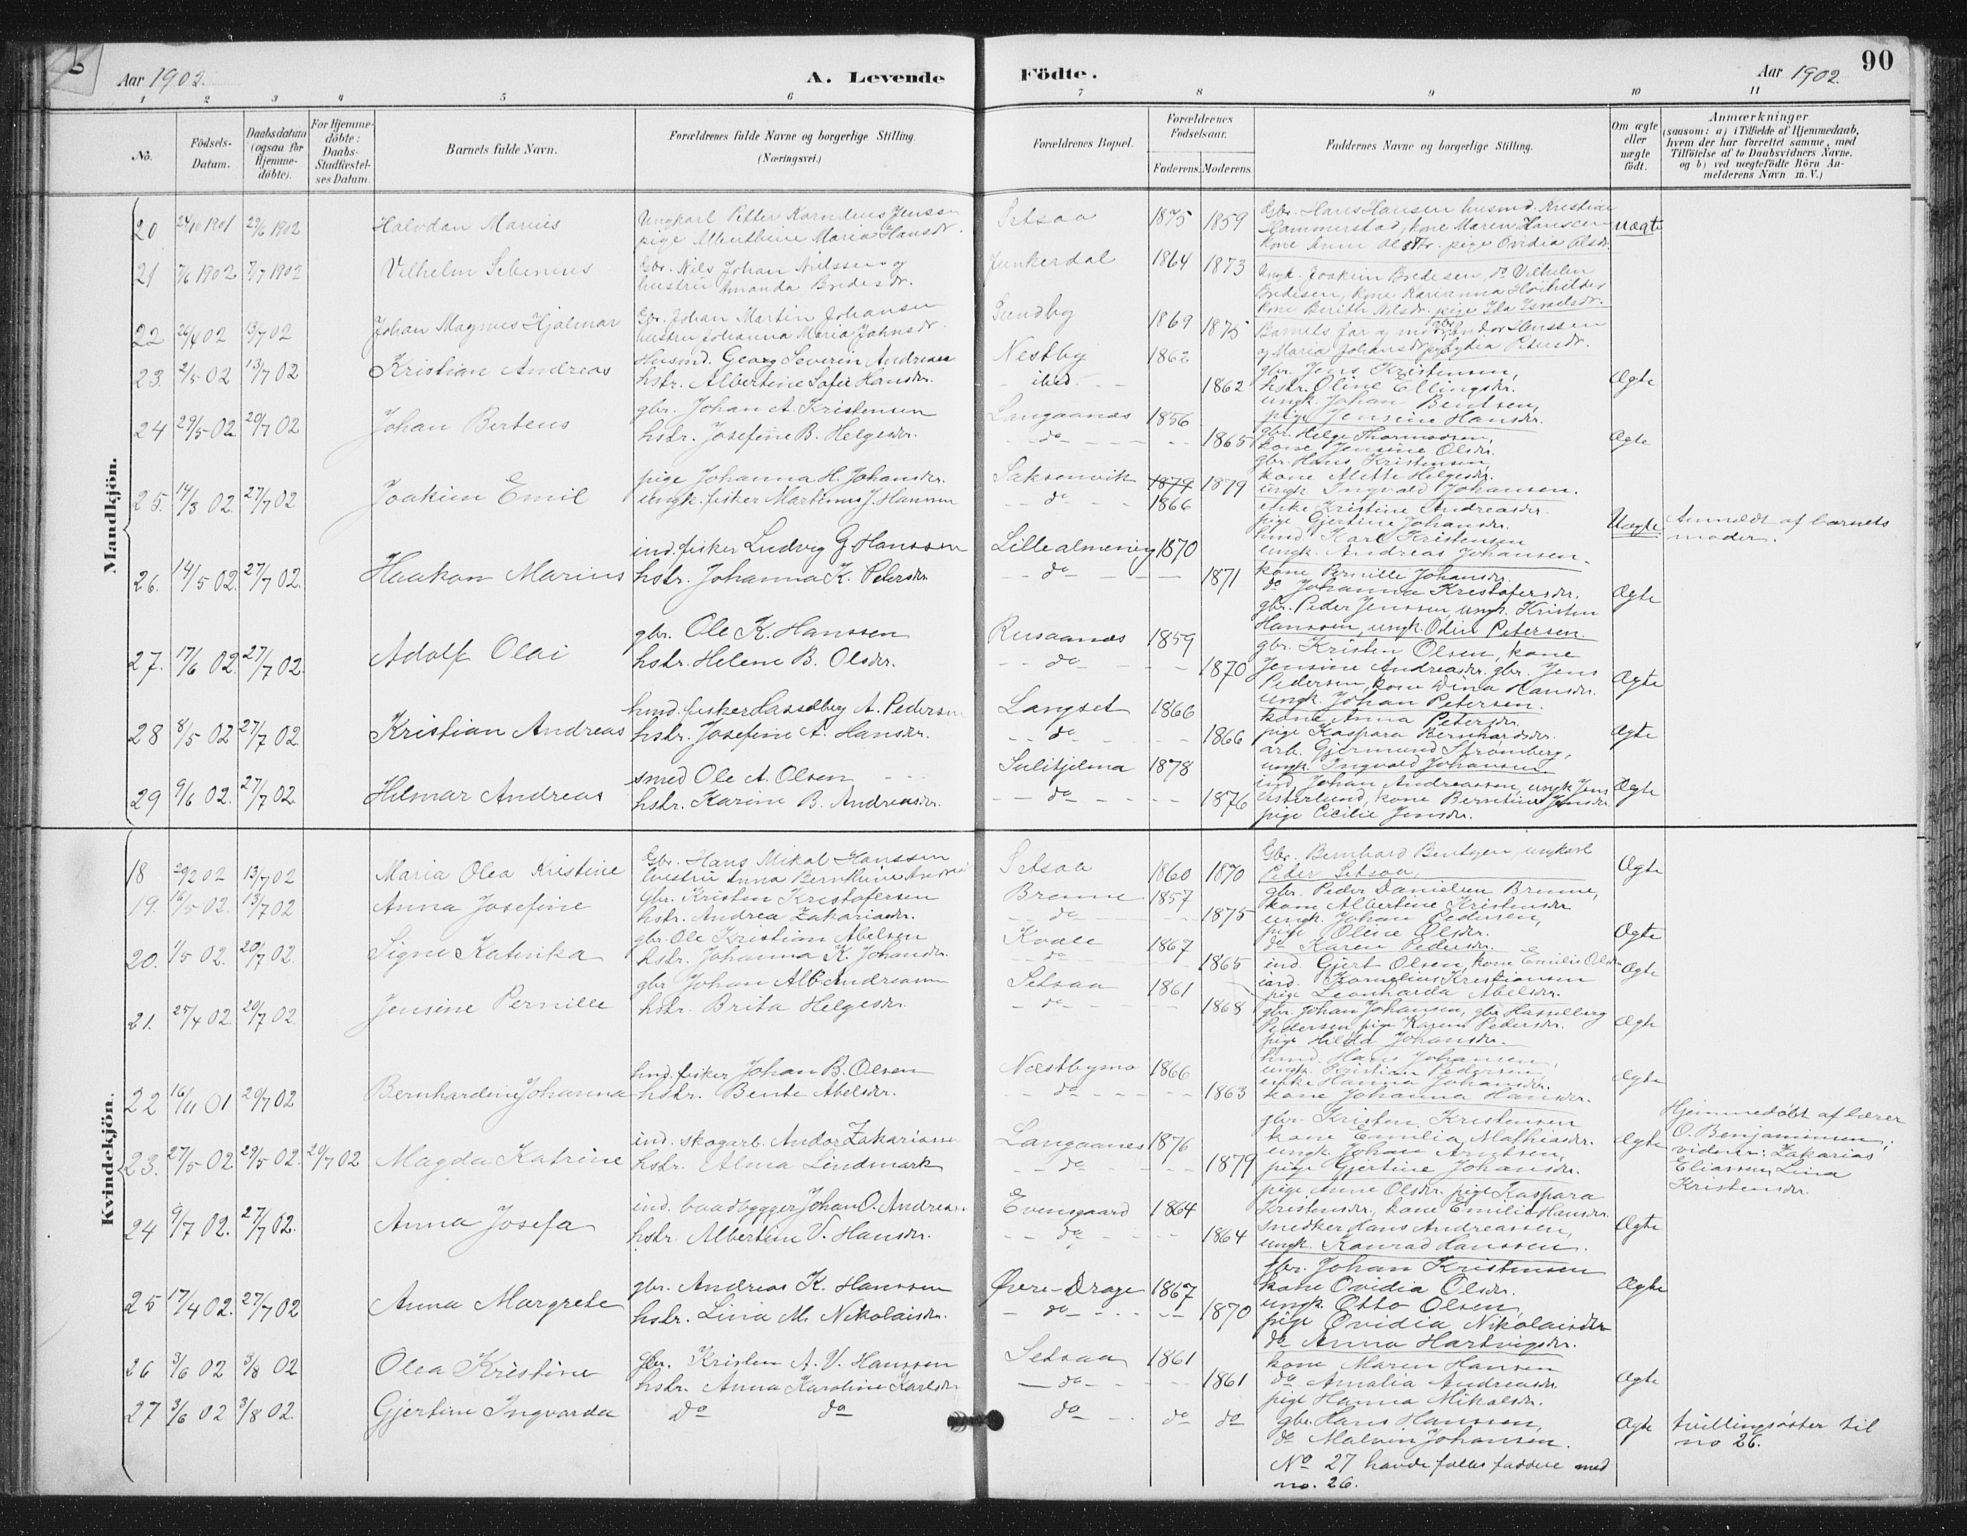 Aar 1902.
A. Levende
Födte.
Aar 1902.
90
1 2 3 4 5 6 7 8 9 10 11
No.
Födsels-Datum.
Daabsdatum (ogsaa for Hjemme-döbte).
For Hjemme-döbte: Daabs-Stadfæstel-ses Datum.
Barnets fulde Navn.
Forældrenes fulde Navne og borgerlige Stilling.
(Næringsvei.)
Forældrenes Bopæl.
Forældrenes Födselsaar.
Faderens.
Moderens
Faddernes Navne og borgerlige Stilling.
Om ægte eller uægte födt.
Anmærkninger
(saasom: a) i Tilfælde af Hjemmedaab,
hvem der har forrettet samme, med
Tilföielse af to Daabsvidners Navne,
og b) ved uægtefödte Börn An-
melderens Navn m. V.)
Mandkjön.
20 24/10 1901 29/6 1902 Halvdan Marius
pige Alberthine Maria Hansdr.
Setsaa 1875 1859
Gbr. Hans Hansen
kone Maren Hansen
pige Ovidia Olsdr.
uægte
21 7/6 1902 7/7 1902 Vilhelm Sebenius
Gbr. Nils Johan Nilssen og
hustru Amanda Bredesdr.
Junkerdal 1864 1873
Ungk. Joakim Bredesen, do Vilhelm
Bredesen, kone Karianna
kone Berith Nilsdr. pige Ida Israelsdr.
22 26/4 02 13/7 02 Johan Magnus Hjalmar
Gbr. Johan Martin Johansen
hustru Johanna Maria Johnsdr.
Sundby 1869 1875
Barnets far og mor,
og Maria Johansdr pige Lydia Petersdr.
23. 2/5 02 13/7 02 Kristian Andreas
Husmd. Georg Severin Andreas
hstr. Albertine Sofie Hansdr.
Nestby 1862
ibid. 1862
gbr. Jens Kristensen,
hstr. Oline Ellingsdr.
ungk. Johan Bentsen,
pige Jensine Hansdr.
Ægte
24 29/5 02 20/7 02 Johan Bertens
gbr. Johan A. Kristensen
hstr. Josefine B. Helgesdr.
Langaanes 1856
do 1865
gbr. Helge Thormodsen,
kone Jensine Olsdr.
gbr. Hans Kristensen,
kone Mette Helgesdr.
ungk. Ingvald Johansen.
Ægte
25. 14/3 02. 27/7 02 Joakim Emil
pige Johanna H. Johansdr.
ungk. fisker Martinus J. Hansen
Saksenvik 1879 1879
do 1866
enke Kristine Andreasdr.
pige Gjertine Johansdr.
husmd. Karl Kristensen
ungk. Andreas Johansen.
Uægte
Anmeldt af barnets
moder.
26. 14/5 02. 27/7 02. Haakon Marius
ind. fisker Ludvig G Hanssen
hstr. Johanna K. Petersdr.
Lillealmening 1870
do 1871
kone Pernille Johansdr.
do Johanna Kristofersdr.
gbr. Peder Jenssen, ungk. Kristen
Hanssen, ungk. Odin Petersen.
Ægte
27. 17/6 02. 27/7 02. Adolf Olai
gbr. Ole K. Hanssen
hstr. Helene B. Olsdr.
Rusaanes 1859
do 1870
gbr. Kristen Olsen, kone
Jensine Andreasdr. gbr. Jens
Pedersen, kone Dina Hansdr.
ungk. Johan Petersen.
Ægte
28 8/5 02 27/7 02. Kristian Andreas
husmd. fisker Hasselberg A. Pedersen
hstr. Josefine A. Hansdr.
Langset 1866
do 1866
kone Anna Petersdr.
pige Kaspara Bernhardsdr.
arb. Gjermund Strömberg,
ungk. Ingvald Johansen
Ægte
29 9/6 02. 27/7 02. Hilmar Andreas
smed Ole A. Olsen
hstr. Karine B. Andreasdr.
Sulitjelma 1878
do 1876
ind. Johan Andreassen, ungk Jens
Østerlund, kone Berntine Jensdr.
pige Cicilie Jensdr.
Ægte
Kvindekjön.
18 29/2 02 13/7 02 Maria Olea Kristine
Gbr. Hans Mikal Hanssen
hustru Anna Bernthine
Setsaa 1860 1870
Gbr. Bernhard Bentzen, ungkarl
Peder Setsaa,
Ægte
19. 16/5 02. 13/7 02 Anna Josefine
Gbr. Kristen Kristofersen
hstr. Andrea Zakariasdr.
Brenne 1857
do 1875
gbr. Peder Danielsen Brenne,
kone Albertine Kristensdr
ungk. Johan Pedersen,
pige Oline Olsdr.
do Karen Pedersdr.
Ægte
20. 1/5 02. 20/7 02. Signe Katinka
gbr. Ole Kristian Abelsen
hstr. Johanna K. Johansdr.
Kvale 1867
do 1865
ind. Gjert Olsen, kone Emilie Olsdr
ind. Kornelius Kristiansen
pige Leonharda Abelsdr.
Ægte
21. 25/4 02. 20/7 02. Jensine Pernille
gbr Johan Alb. Andreasen
hstr. Brita Helgesdr.
Setsaa 1861
do 1868
gbr. Johan Johansen, gbr Hasselberg
Pedersen, pige Karen Pedersdr.
pige Hilda Johansdr.
Ægte
22 16/11 01 20/7 02 Bernhardine Johanna
husmd. fisker Johan B. Olsen
hstr. Bente Abelsdr.
Næstbymo 1866
do 1863
husmd. Hans Johansen,
ungk. Kristian Pedersen,
enke Hanna Johansdr.
kone Johanna Hansdr.
Ægte
23. 27/5 02. 29/5 02. 20/7 02 Magda Katrine
ind. skogarb. Andor Zakariassen
hstr. Alma Lindmark
Langaanes 1876
do 1879
gbr. Kristen Kristensen
kone Emilia Mathiasdr.
ungk. Johan Arntsen,
pige Gjertine Johansdr.
Ægte
Hjemmedøbt af lærer
O. Benjaminsen;
vidner: Zakarias
Eliassen, Lina
Kristensdr.
24 9/7 02. 27/7 02. Anna Josefa
ind. baadbygger Johan O. Andreasen
hstr. Albertine V. Hansdr.
Evensgaard 1864
do 1864
pige Anne Olsdr. pige Kaspara
Kristensdr, kone Emilie Hansdr.
snedker Hans Andreassen,
ungk. Konrad Hanssen.
Ægte
25 17/4 02. 27/7 02 Anna Margrete
gbr. Andreas K. Hanssen
hstr. Lina M. Nikolaisdr.
Øvre-Drage 1867
do 1870
gbr. Johan Kristensen
kone Ovidia Olsdr.
ungk. Otto Olsen,
pige Ovidia Nikolaisdr
do Anna Hartvigsdr.
Ægte
26 3/6 02 3/8 02 Olea Kristine
gbr. Kristen A. V. Hanssen
hstr. Anna Karoline Karlsdr
Setsaa 1861
do 1861
kone Maren Hansen
do Amalia Andreasdr.
pige Hanna Mikalsdr.
Ægte
27 3/6 02 3/8 02. Gjertine Ingvarda
Do do
do do do
gbr. Hans Hanssen,
do Malvin Johansen.
No 27 havde fælles faddere med
no. 26.
Ægte
tvillingsøster til
no 26.